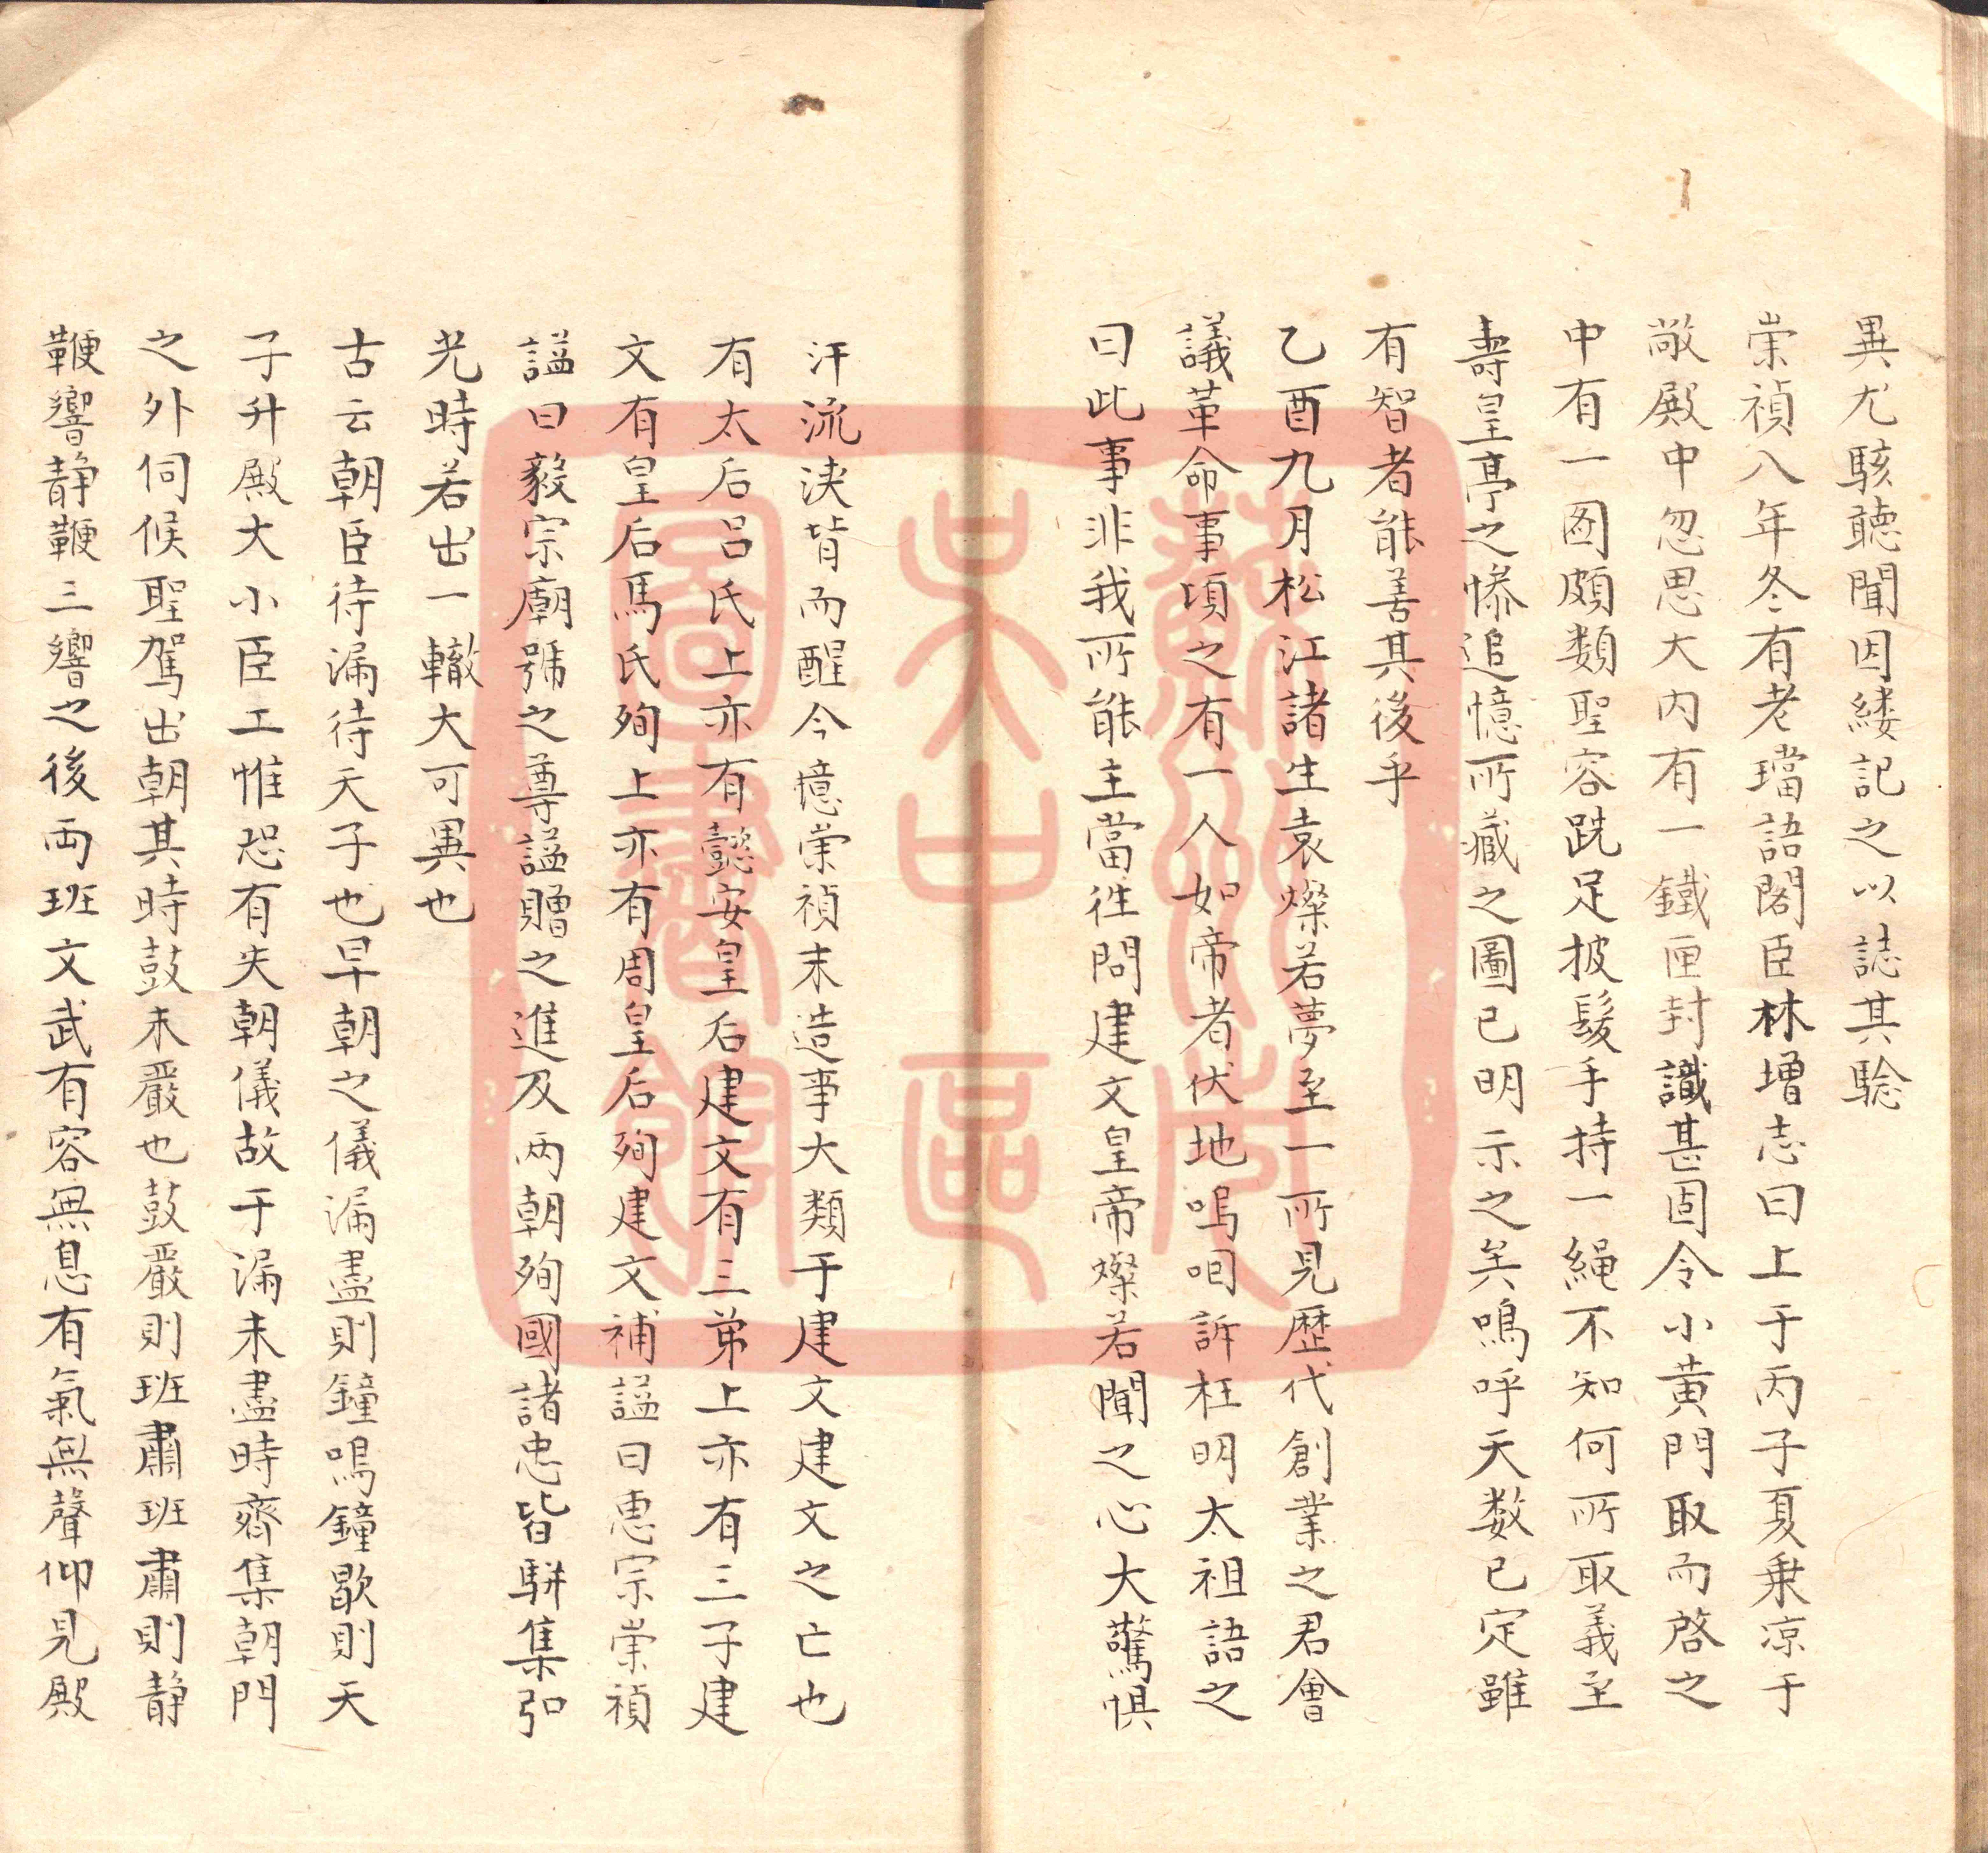 異尤駭聽聞因縷記之以誌其驗
崇禎八年冬有老璫語閣臣林增志曰上于丙子夏乗凉于
敞殿中忽思大内有一鐵匣封識甚固令小黄門取而啓之
中有一图頗類聖容跣足披髮手持一繩不知何所取義至
壽皇亭之慘追憶所藏之圖已明示之矣嗚呼天数已定雖
有智者能善其後乎
乙酉九月松江諸生袁燦若夢至一所見歴代創業之君會
議革命事頃之有一人如帝者伏地嗚咽訴枉明太祖語之
曰此事非我所能主當徃問建文皇帝燦若聞之心大驚惧
汗流浹背而醒今憶崇禎末造事大類于建文建文之亡也
有太后吕氏上亦有懿安皇后建文有三弟上亦有三子建
文有皇后馬氏殉上亦有周皇后殉建文補謚曰惠宗崇禎
謚曰毅宗廟號之尊謚贈之進及两朝殉國諸忠皆駢集弘
光時若出一轍大可異也
古云朝臣待漏待天子也早朝之儀漏盡則鐘鳴鐘歇則天
子升殿大小臣工惟恐有失朝儀故于漏未盡時齊集朝門
之外伺候聖駕出朝其時鼓未嚴也鼓嚴則班肅班肅則静
鞭響静鞭三響之後两班文武有容無息有氣無聲仰見殿
蘇州市
吴中區
圖書館